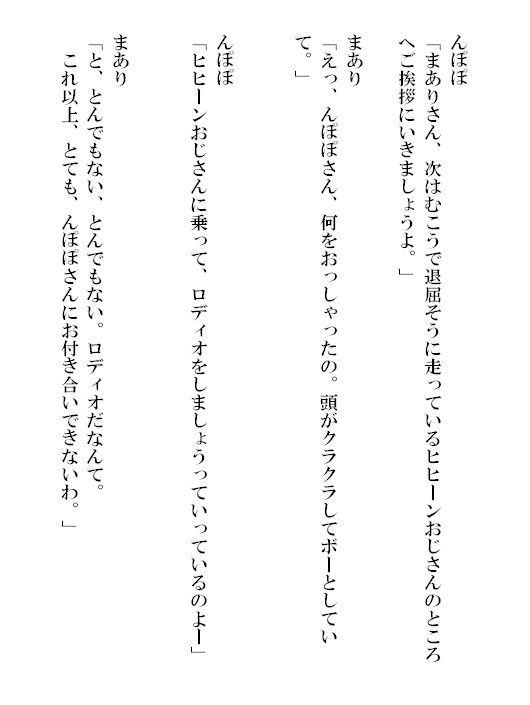 んぽぽ
「まありさん、次はむこうで退屈そうに走っているヒヒーンおじさんのところ
へご挨拶にいきましょうよ。」
まあり
「えっ、んぽぽさん、何をおっしゃったの。頭がクラクラしてボーとしてい
て。」
んぽぽ
「ヒヒーンおじさんに乗って、ロディオをしましょうっていっているのよー」
まあり
「と、とんでもない、とんでもない。ロディオだなんて。
これ以上、とても、んぽぽさんにお付き合いできないわ。」